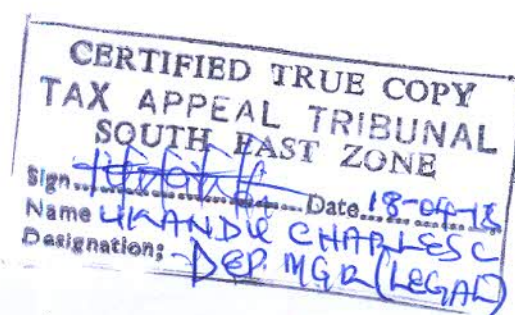 CERTIFIED TRUE COPY
TAX APPEAL TRIBUNAL
SOUTH EAST ZONE
Sign.................Date 18-04-18
Name UKANDU CHARLES C
Designation: DEP. MGR (LEGAL)